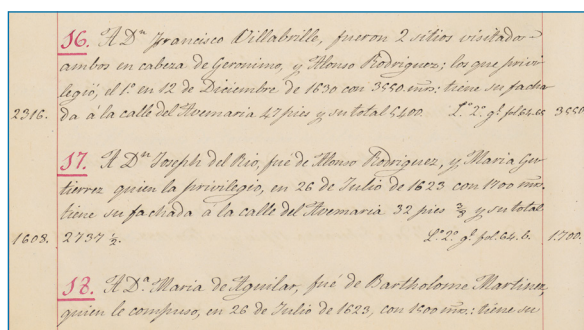 16. A Dⁿ Francisco Villabrille, fueron 2 sitios visitados
ambos en cabeza de Geronimo, y Alonso Rodriguez; los que privi
legió; el 1º en 12 de Diciembre de 1630 con 3550 mrs: tiene su facha
2316. da à la calle del Avemaria 47 pies y su total 5400. Lº 2º gl fol. 64. 3550
17. A Dⁿ Joseph del Rio, fué de Alonso Rodriguez, y Maria Gu
tierrez quien la privilegio, en 26 de Julio de 1623 con 1700 mrs.
tiene su fachada à la calle del Avemaria 32 pies y su total
1608. 2737 ½. Lº 2º gl fol. 64. b. 1.700.
18. A Dª Maria de Aguilar, fué de Bartholome Martinez,
quien le compuso, en 26 de Julio de 1623, con 1500 mrs: tiene su